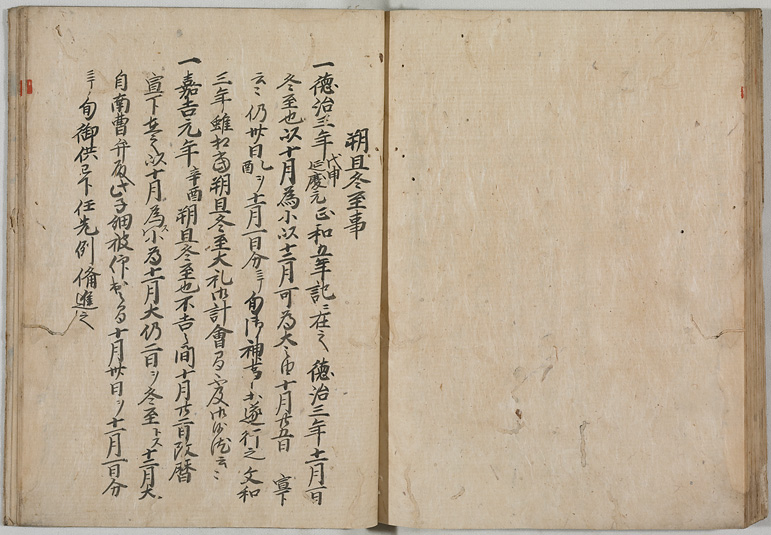 朔旦冬至事
一徳治三年戊申延慶元正和五年記ニ在之徳治三年十一月一日
冬至也以十月為小以十一月可為大之由十月廿五日宣下
云々仍卅日乙酉ヲ十一月一日分ニテ旬御神事等遂行之文和
三年雖相当朔旦冬至大礼
一嘉吉元年辛酉朔旦冬至也不吉之間十月廿二日改暦
宣下在之以十月為小ス為十一月大仍二日ヲ冬至トス十一月大
自南曹弁殿此子細被仰出 十月卅日ヲ十一月一日分
ニテ旬御供已下任先例備進之